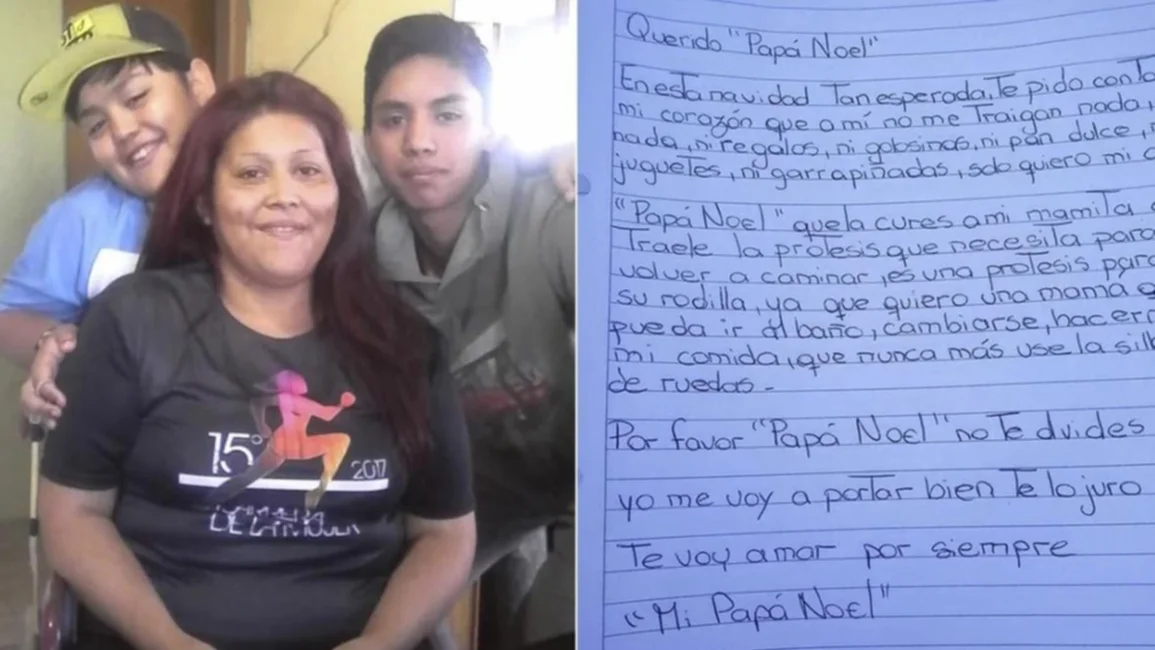 15° 2017
DE LA MUJER
Querido "Papá Noel"
En esta navidad Tan esperada, Te pido con
mi corazón que a mí no me Traigan nada,
nada, ni regalos, ni golosinas, ni pan dulce,
juguetes, ni garrapiñadas, solo quiero mi
"Papá Noel" que la cures a mi mamita
Traele la prótesis que necesita para
volver a caminar, es una protesis para
su rodilla, ya que quiero una mamá
pueda ir al baño, cambiarse, hacerm
mi comida, que nunca más use la sill
de ruedas -
Por favor "Papá Noel" no Te olvides
yo me voy a portar bien Te lo juro
Te voy amar por siempre
"Mi Papá Noel"